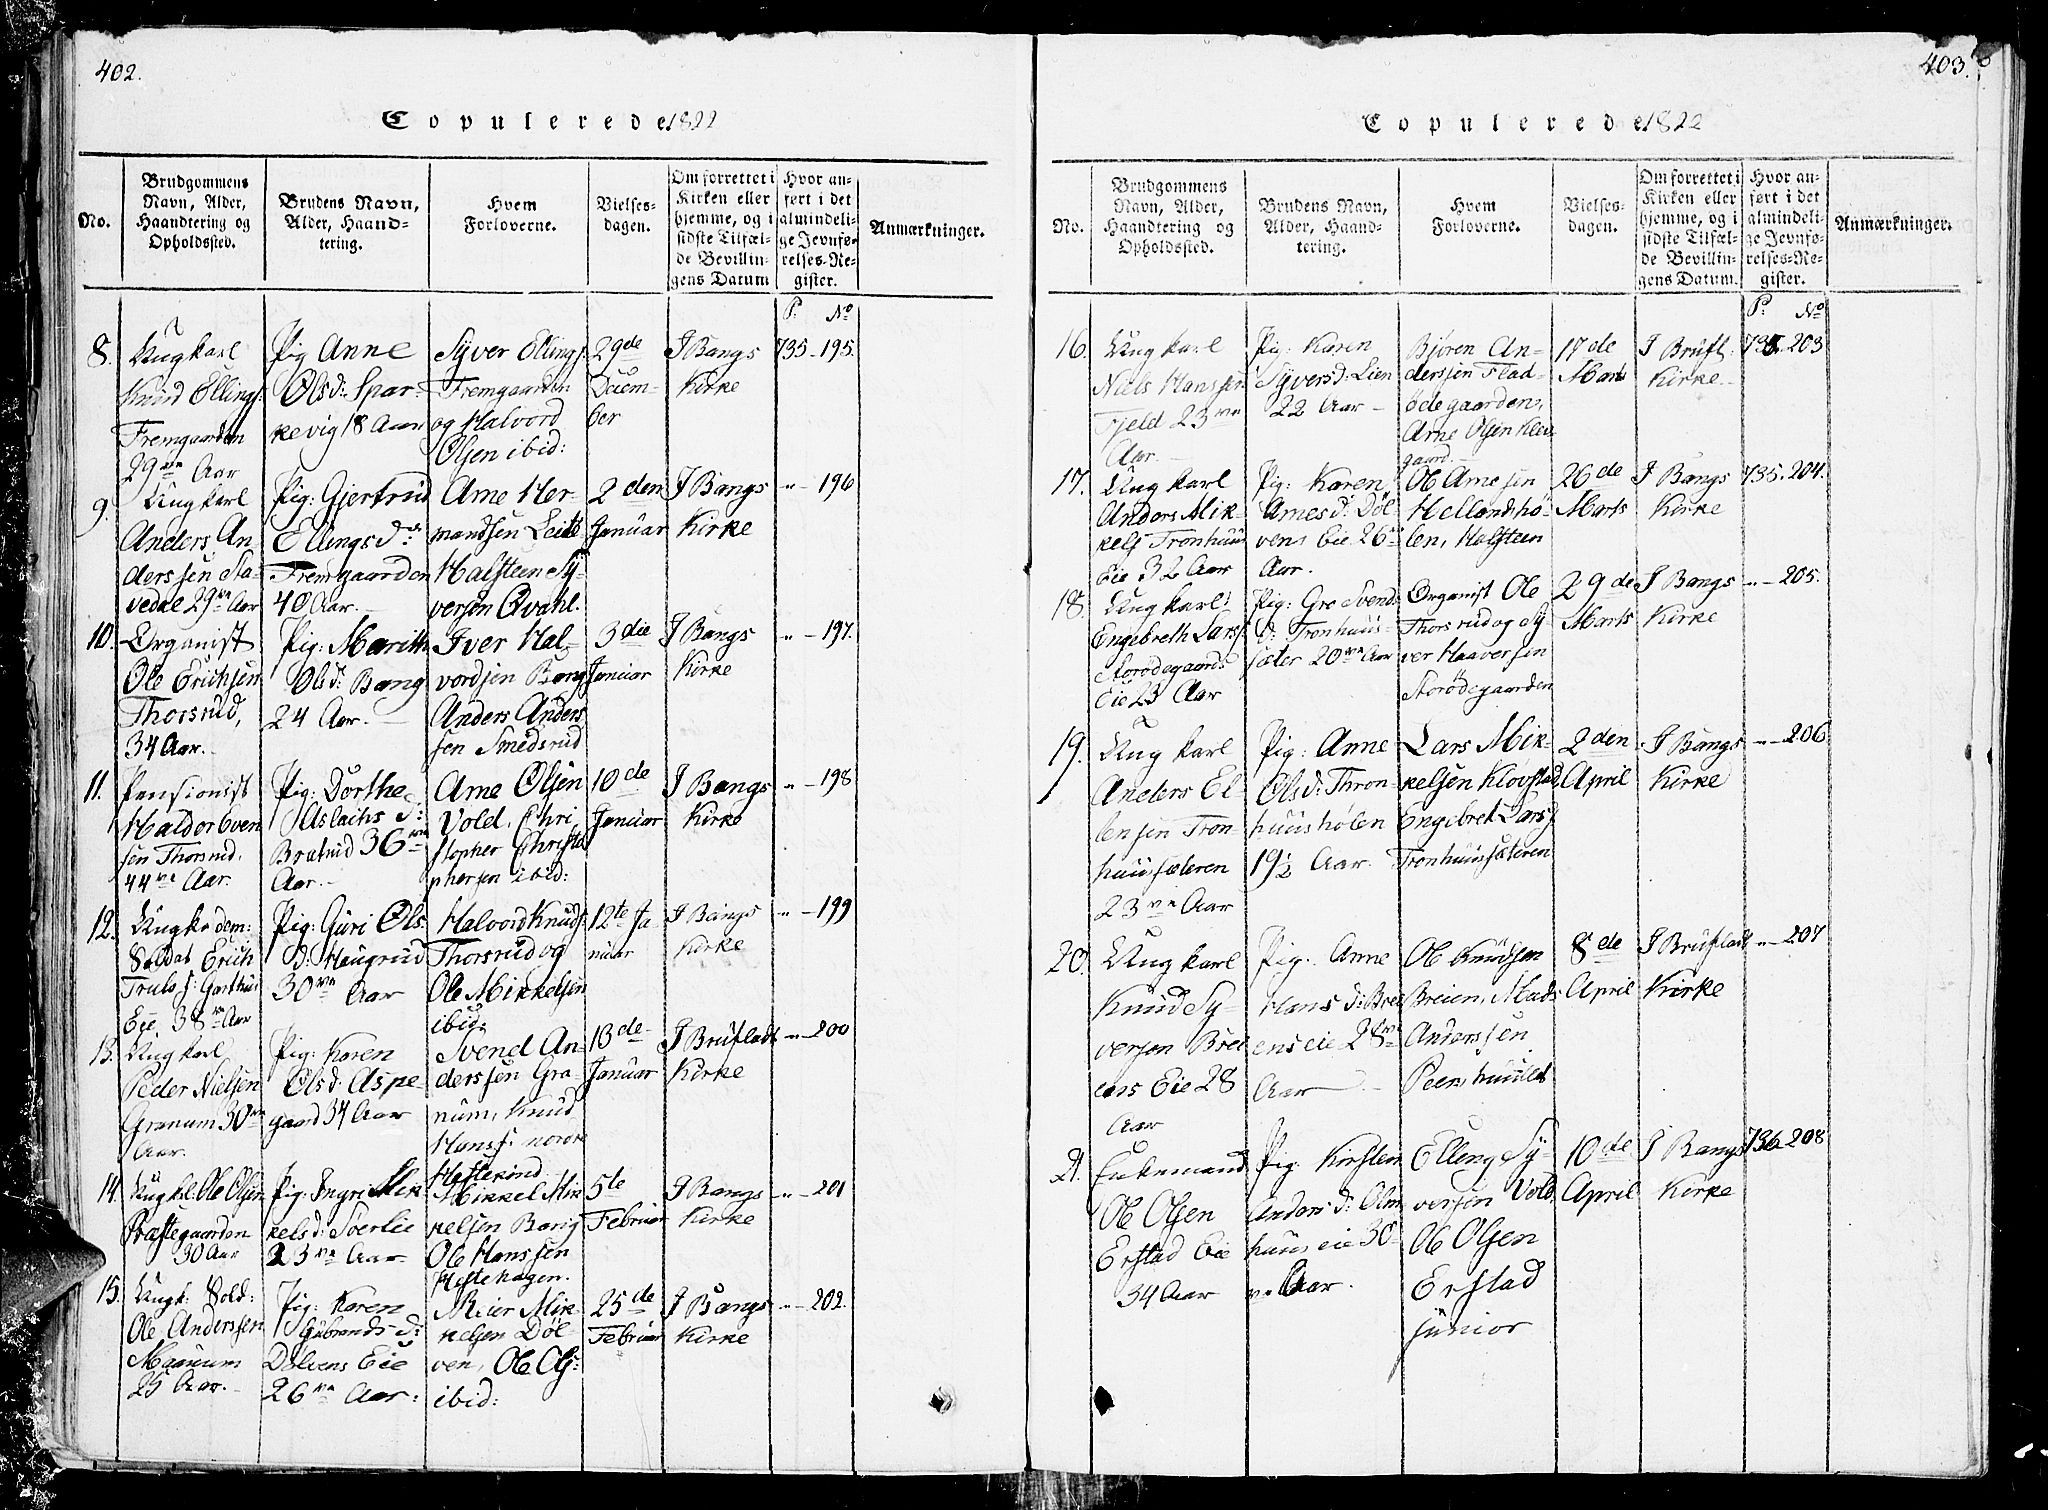 402.
Copulerede 1822
No.
Brudgommens
Navn, Alder,
Haandtering og
Opholdssted.
Brudens Navn,
Alder, Haand-
tering.
Hvem
Forloverne.
Vielses-
dagen.
Om forrettet i
Kirken eller
hjemme, og i
sidste Tilfæl-
de Bevillin-
gens Datum
Hvor an-
ført i det
almindeli-
ge Jevnfø-
relses-Re-
gister.
Anmærkninger.
P. No
8.
Ungkarl
Knud Ellings:
Fremgaarden
29 Aar
Pig Anne
Olsd: Spar-
kevig 18 Aar
Syver Ellings:
Fremgaarden
og Halvord
Olsen ibid:
29de
Decem-
ber
I Bangs
Kirke
735-195.
9.
Ungkarl
Anders An-
derssen Sta-
vedal 29 Aar
Pig: Gjertrud
Ellings d:
Fremgaarden
40 Aar.
Arne Her-
mandsen Leite
Halsteen Sy-
versen Qvahl.
2den
Januar
I Bangs
Kirke
" - 196
10.
Organist
Ole Erichsen
Thorsrud,
34 Aar.
Pig: Marith
Olsd: Bang
24 Aar.
Iver Hal-
vordsen Bang
Anders Anders
sen Smedsrud
3die
Januar
I Bangs
Kirke
" - 197.
11.
Pensionist
Haldor Even
sen Thorsrud.
44 Aar.
Pig: Dorthe
Aslachs d:
Bratrud 36
Aar.
Arne Olsen
Vold, Chri
stopher Christo
phersen ibid:
10de
Januar
I Bangs
Kirke
" - 198
12.
Ungk: dem:
Soldat Erich
Truls s: Garthus
Eie, 38 Aar
Pig: Guri Ols
d: Haugrud
30 Aar
Halvord Knuds:
Thorsrud og
Ole Mikkelsen
ibid:
12te Ja
nuar
I Bangs
Kirke
" - 199
13.
Ungkarl
Peder Nielsen
Granum 30
Aar.
Pig: Karen
Olsd: Aspe-
gaard 34 Aar
Svend An-
derssen Gra-
num, Knud
Hanss: nordre
Hellekind.
13de
Januar
I Brufladt
Kirke
" - 200
14.
Ungkl. Ole Olsen
Præstegaarden
30 Aar
Pig: Ingri Mik
kelsd: Sørlie
23 Aar
Mikkel Mik
kelsen Bang
Ole Hanssen
Hestehagen.
5te
Februar
I Bangs
Kirke
" - 201
15.
Ungk: Sold:
Ole Anderssen
25 Aar.
Pig: Karen
Gulbrands d:
Dølvens Eie
26 Aar:
Meier Mik-
kelsen Døl-
ven, Ole Ols:
ibid:
25de
Februar
I Bangs
Kirke
" - 202.
403.
Copulerede 1822
No.
Brudgommens
Navn, Alder,
Haandtering og
Opholdssted.
Brudens Navn,
Alder, Haand-
tering.
Hvem
Forloverne.
Vielses-
dagen.
Om forrettet i
Kirken eller
hjemme, og i
sidste Tilfæl-
de Bevillin-
gens Datum.
Hvor an-
ført i det
almindeli-
ge Jevnfø-
relses-Re-
gister.
Anmærkninger.
P. No
16.
Ungkarl
Niels Hanssen
Fjeld 23
Aar.
Pig: Karen
Syversd: Lien
22 Aar
Bjøren An-
derssen Flad-
ødegaarden,
Arne Olsen Klev
gaard.
17de
Marts
I Brufl.
Kirke
735.203
17.
Ungkarl
Anders Mik-
kels Tronhuus
Eie 32 Aar
Pig: Karen
Arnes d: Døl
vens Eie 26
Aar.
Ole Arnesen
Hellandhø-
len, Halsteen
26de
Marts
I Bangs
Kirke
735.204.
18.
Ungkarl
Engebreth Lars:
Storødegaards
Eie 23 Aar
Pig: Gro Svend
d: Tronhuus-
sæter 20 Aar
Organist Ole
Thorsrud og Sy
ver Haaversen
Storødegaarden
29de
Marts
I Bangs
Kirke
" - 205.
19.
Ungkarl
Anders El-
lensen Tron-
huussæteren
23 Aar
Pig: Anne
Olsd: Thron-
huushølen
19½ Aar
Lars Mik-
kelsen Klovstad,
Engebret Lars:
Tronhuussæteren
2den
April
I Bangs
Kirke
" - 206
20.
Ungkarl
Knud Sy-
versen Brei
ens Eie 28
Aar
Pig. Anne
Hans d: Brei
ens eie 28
Aar
Ole Knudsen
Breien, Mads
Anderssen
8de
April
I Bruflat
Kirke
" - 207
21.
Enkemand
Ole Olsen
Erstad Eie
34 Aar
Pig: Kirsten
Anders d: Olm
huus eie 30
Aar.
Elling Sy-
versen Vold,
Ole Olsen
Erstad
junior
10de
April
I Bangs
Kirke
736-208